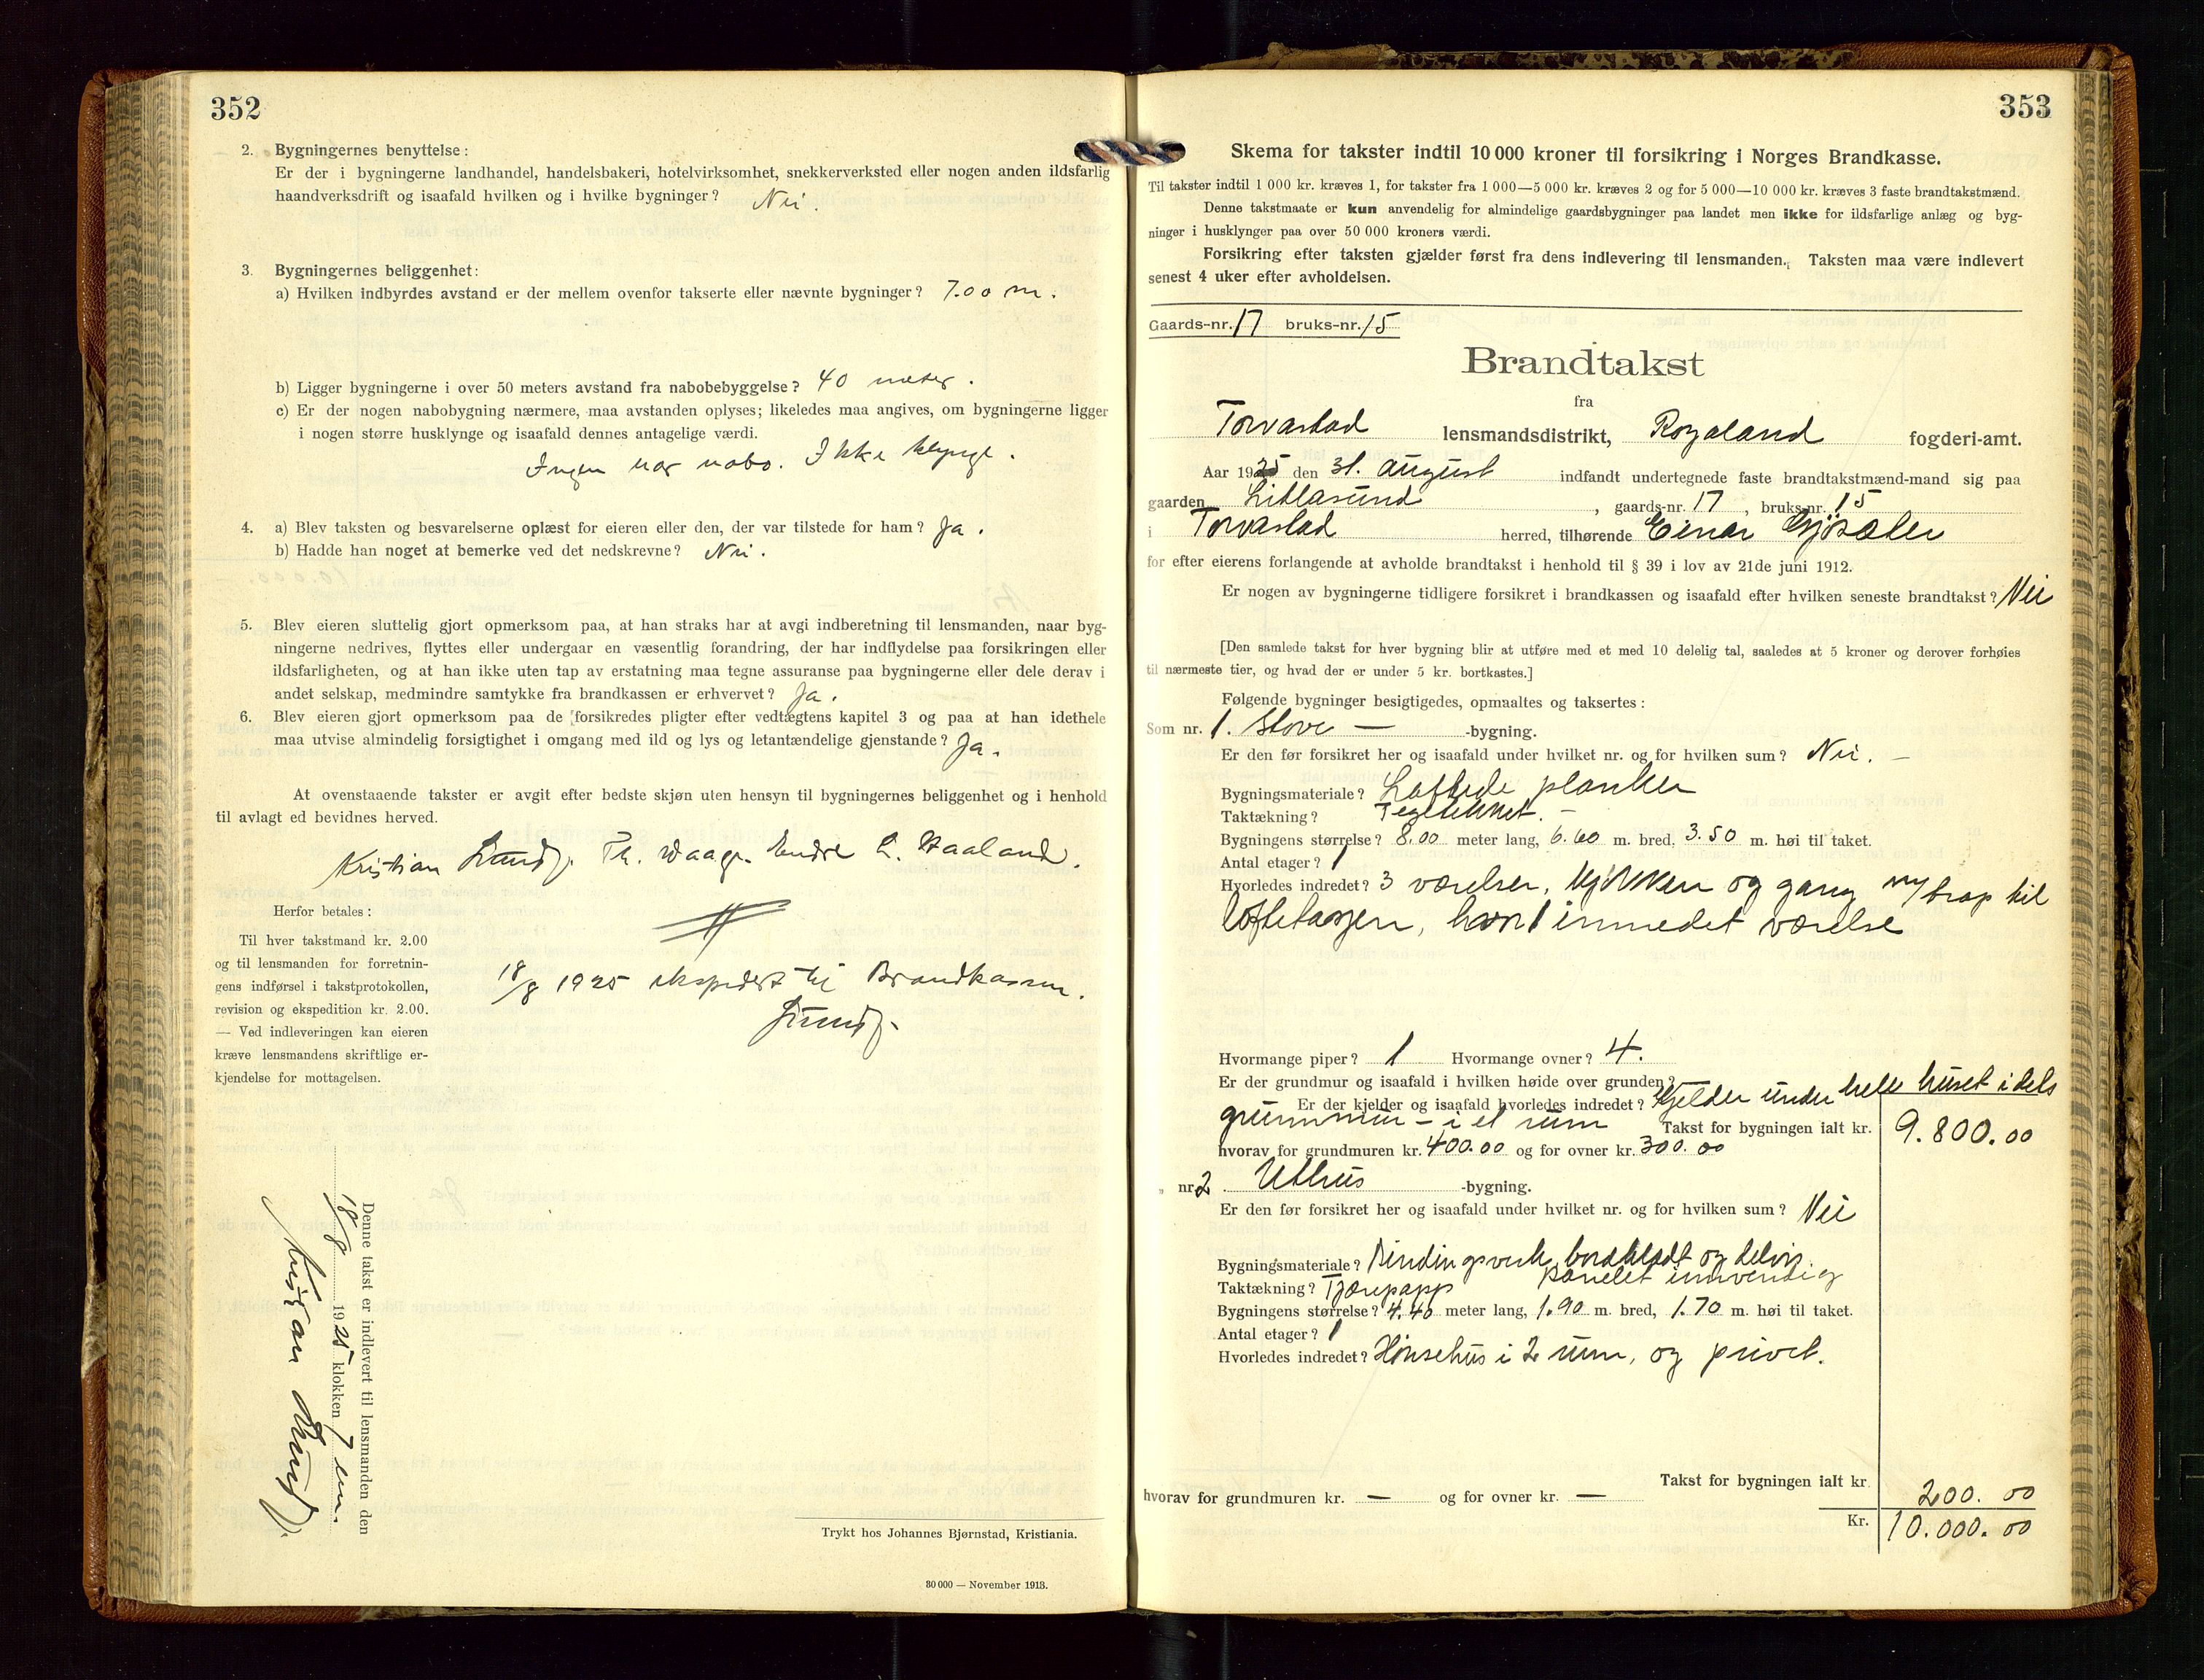 352
2. Bygningernes benyttelse:
Er der i bygningerne landhandel, handelsbakeri, hotelvirksomhet, snekkerverksted eller nogen anden ildsfarlig
haandverksdrift og isaafald hvilken og i hvilke bygninger? Nei.
3. Bygningernes beliggenhet:
a) Hvilken indbyrdes avstand er der mellem ovenfor takserte eller nævnte bygninger? 7.00 m.
b) Ligger bygningerne i over 50 meters avstand fra nabobebyggelse? 40 meter.
c) Er der nogen nabobygning nærmere, maa avstanden oplyses; likeledes maa angives, om bygningerne ligger
i nogen større husklynge og isaafald dennes antagelige værdi.
Ingen nær nabo. Ikke klynge.
4. a) Blev taksten og besvarelserne oplæst for eieren eller den, der var tilstede for ham? Ja.
b) Hadde han noget at bemerke ved det nedskrevne? Nei.
5. Blev eieren sluttelig gjort opmerksom paa, at han straks har at avgi indberetning til lensmanden, naar byg-
ningerne nedrives, flyttes eller undergaar en væsentlig forandring, der har indflydelse paa forsikringen eller
ildsfarligheten, og at han ikke uten tap av erstatning maa tegne assuranse paa bygningerne eller dele derav i
andet selskap, medmindre samtykke fra brandkassen er erhvervet? Ja.
6. Blev eieren gjort opmerksom paa de forsikredes pligter efter vedtægtens kapitel 3 og paa at han idethele
maa utvise almindelig forsigtighet i omgang med ild og lys og letantændelige gjenstande? Ja.
At ovenstaaende takster er avgit efter bedste skjøn uten hensyn til bygningernes beliggenhet og i henhold
til avlagt ed bevidnes herved.
Kristian Th. Waage. Endre L. Haaland.
Herfor betales:
Til hver takstmand kr. 2.00
og til lensmanden for forretnin-
gens indførsel i takstprotokollen,
revision og ekspedition kr. 2.00.
— Ved indleveringen kan eieren
kræve lensmandens skriftlige er-
kjendelse for mottagelsen.
18/8 1925 ekspedert til Brandkassen.
Denne takst er indlevert til lensmanden den
18/8 1925 klokken 7 em.
Kristian
Trykt hos Johannes Bjørnstad, Kristiania.
30 000 — November 1918.
353
Skema for takster indtil 10 000 kroner til forsikring i Norges Brandkasse.
Til takster indtil 1 000 kr. kræves 1, for takster fra 1 000—5 000 kr. kræves 2 og for 5 000—10 000 kr. kræves 3 faste brandtakstmænd.
Denne takstmaate er kun anvendelig for almindelige gaardsbygninger paa landet men ikke for ildsfarlige anlæg og byg-
ninger i husklynger paa over 50 000 kroners værdi.
Forsikring efter taksten gjælder først fra dens indlevering til lensmanden. Taksten maa være indlevert
senest 4 uker efter avholdelsen.
Gaards-nr. 17 bruks-nr. 15
Brandtakst
fra
Torvastad lensmandsdistrikt, Rogaland fogderi-amt.
Aar 1925 den 31. august indfandt undertegnede faste brandtakstmænd-mand sig paa
gaarden Litlasund, gaards-nr. 17, bruks-nr. 15
i Torvastad herred, tilhørende Einar
for efter eierens forlangende at avholde brandtakst i henhold til § 39 i lov av 21de juni 1912.
Er nogen av bygningerne tidligere forsikret i brandkassen og isaafald efter hvilken seneste brandtakst? Nei
[Den samlede takst for hver bygning blir at utføre med et med 10 delelig tal, saaledes at 5 kroner og derover forhøies
til nærmeste tier, og hvad der er under 5 kr. bortkastes.]
Følgende bygninger besigtigedes, opmaaltes og taksertes:
Som nr. 1. Stove — -bygning.
Er den før forsikret her og isaafald under hvilket nr. og for hvilken sum? Nei. —
Bygningsmateriale? Laftede planker
Taktækning? Tegltækket. —
Bygningens størrelse? 8.00 meter lang, 6.60 m. bred, 3.50 m. høi til taket.
Antal etager? 1
Hvorledes indredet? 3 værelser, kjøkken og gang m/trap til
loftetagen, hvor 1 innredet værelse
Hvormange piper? 1 Hvormange ovner? 4.
Er der grundmur og isaafald i hvilken høide over grunden?
Er der kjelder og isaafald hvorledes indredet? Kjelder under hele huset idels
grunnmur – i et rum Takst for bygningen ialt kr. 9.800.00
hvorav for grundmuren kr. 400.00 og for ovner kr. 300.00
„ nr. 2 Uthus -bygning.
Er den før forsikret her og isaafald under hvilket nr. og for hvilken sum? Nei
Bygningsmateriale? Bindingsverk, bordklædt og delvis
panelet innvendig
Taktækning? Tjærepapp
Bygningens størrelse? 4.40 meter lang, 1.90 m. bred, 1.70 m. høi til taket.
Antal etager? 1
Hvorledes indredet? Hønsehus i 2 rum, og privet.
Takst for bygningen ialt kr. 200.00
hvorav for grundmuren kr. — og for ovner kr. —
Kr. 10.000.00